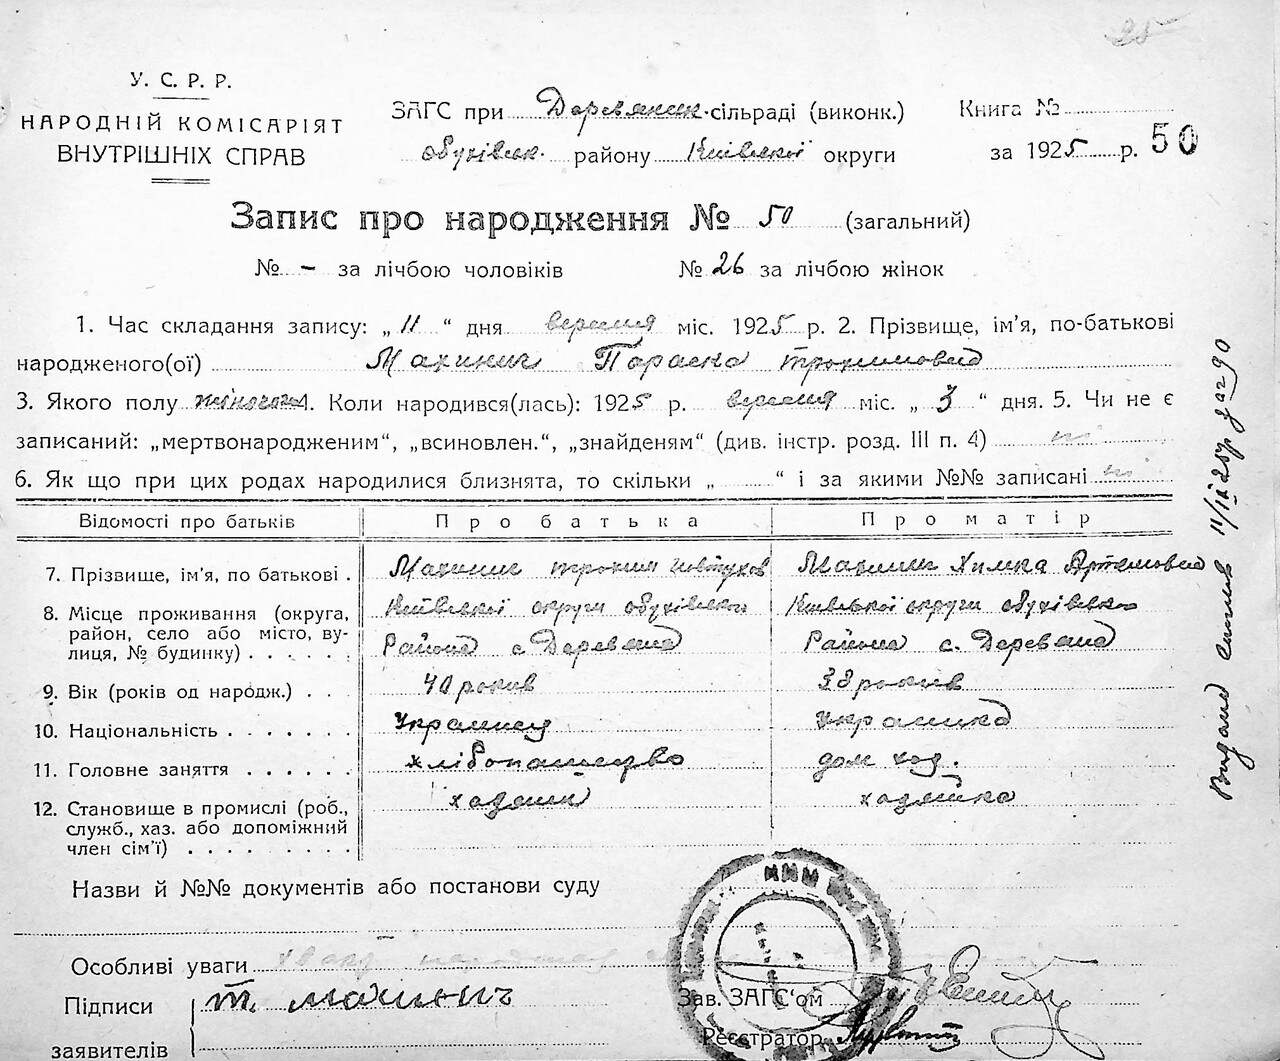 25
У. С. Р. Р.
НАРОДНІЙ КОМІСАРІЯТ
ВНУТРІШНІХ СПРАВ
ЗАГС при Деревянск. сільраді (виконк.)
обухівськ. району Київської округи
Книга №
за 1925 р. 50
Запис про народження № 50 (загальний)
№ – за лічбою чоловіків № 26 за лічбою жінок
1. Час складання запису: „ 11 “ дня вересня міс. 1925 р. 2. Прізвище, ім’я, по-батькові
народженого(ої) Махинич Параска трохимовна
3. Якого полу жіночого 4. Коли народився(лась): 1925 р. вересня міс. „ 3 “ дня. 5. Чи не є
записаний: „мертвонародженим“, „всиновлен.“, „знайденям“ (див. інстр. розд. III п. 4) ні
6. Як що при цих родах народилися близнята, то скільки „ “ і за якими №№ записані ні
Відомості про батьків Про батька Про матір
7. Прізвище, ім’я, по батькові . Махинич трохим Махинич Химка Артемовна
8. Місце проживання (округа, Київської округи обухівского Київської округи обухівского
район, село або місто, ву-
лиця, № будинку) . . . . . . Района с Деревяна Района с. Деревяна
9. Вік (років од народж.) . . 40 років 38 років
10. Національність . . . . . . . украинец украинка
11. Головне заняття . . . . . . хлібопашество дом хоз.
12. Становище в промислі (роб., хазяин хазяйка
служб., хаз. або допоміжний
член сім’ї) . . . . . . . . .
Назви й №№ документів або постанови суду
Особливі уваги
Підписи т. махинич Зав. ЗАГС‘ом
заявителів Реєстратор
11/IX 25р